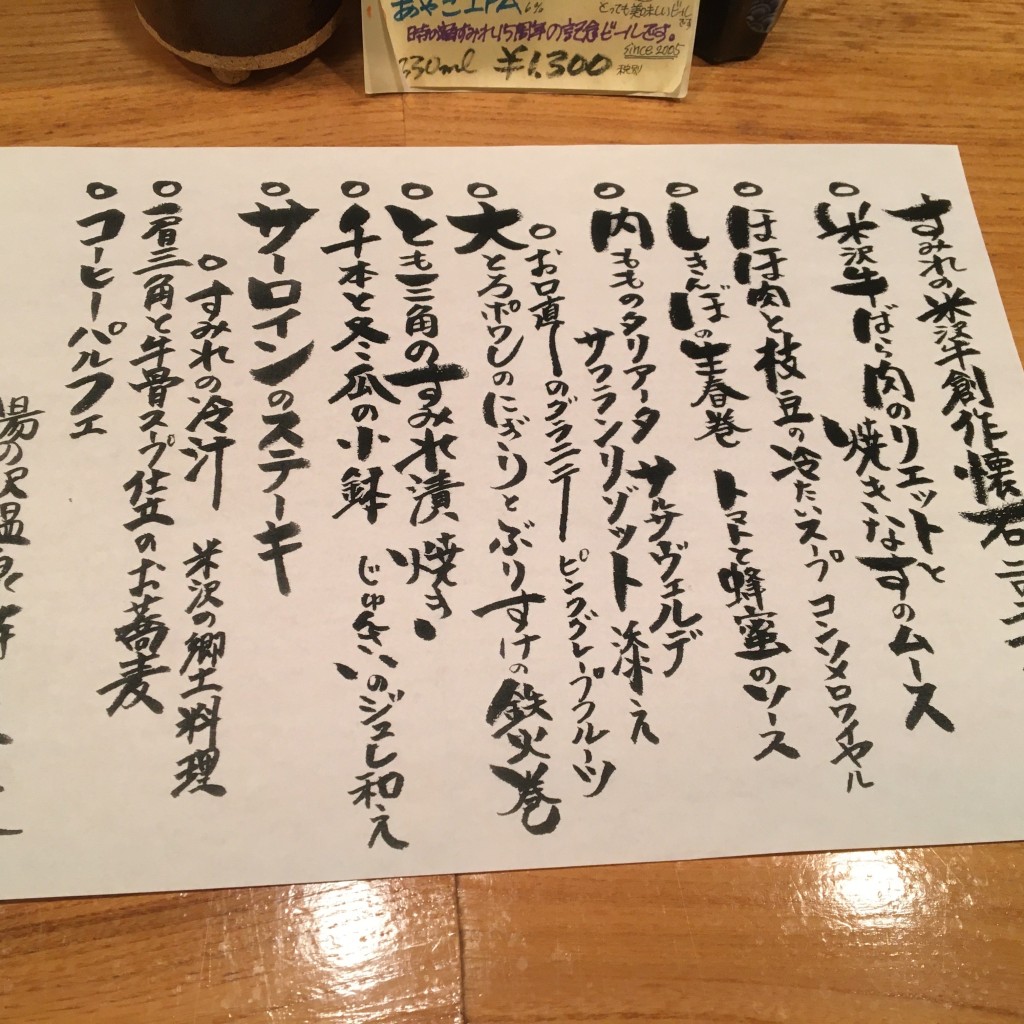 あやこIPA 6%
とっても美味しいビール
です
時の宿すみれ15周年の記念ビールです。
since 2005
330ml ¥1,300 税別
すみれの米沢牛創作懐石
○米沢牛ばら肉のリエットと
焼きなすのムース
○ほほ肉と枝豆の冷たいスープ コンソメロワイヤル
○しきんぼの生春巻 トマトと蜂蜜のソース
○内もものタリアータ サルサヴェルデ
サフランリゾット添え
○お口直しのグラニテー ピンググレープフルーツ
○大とろポワレのにぎりとぶりすけの鉄火巻
○とも三角のすみれ漬 焼き
○千本と冬瓜の小鉢 じゅんさいのジュレ和え
○サーロインのステーキ
○すみれの冷汁 米沢の郷土料理
○肩三角と牛骨スープ仕立のお蕎麦
○コーヒーパルフェ
湯の沢温泉